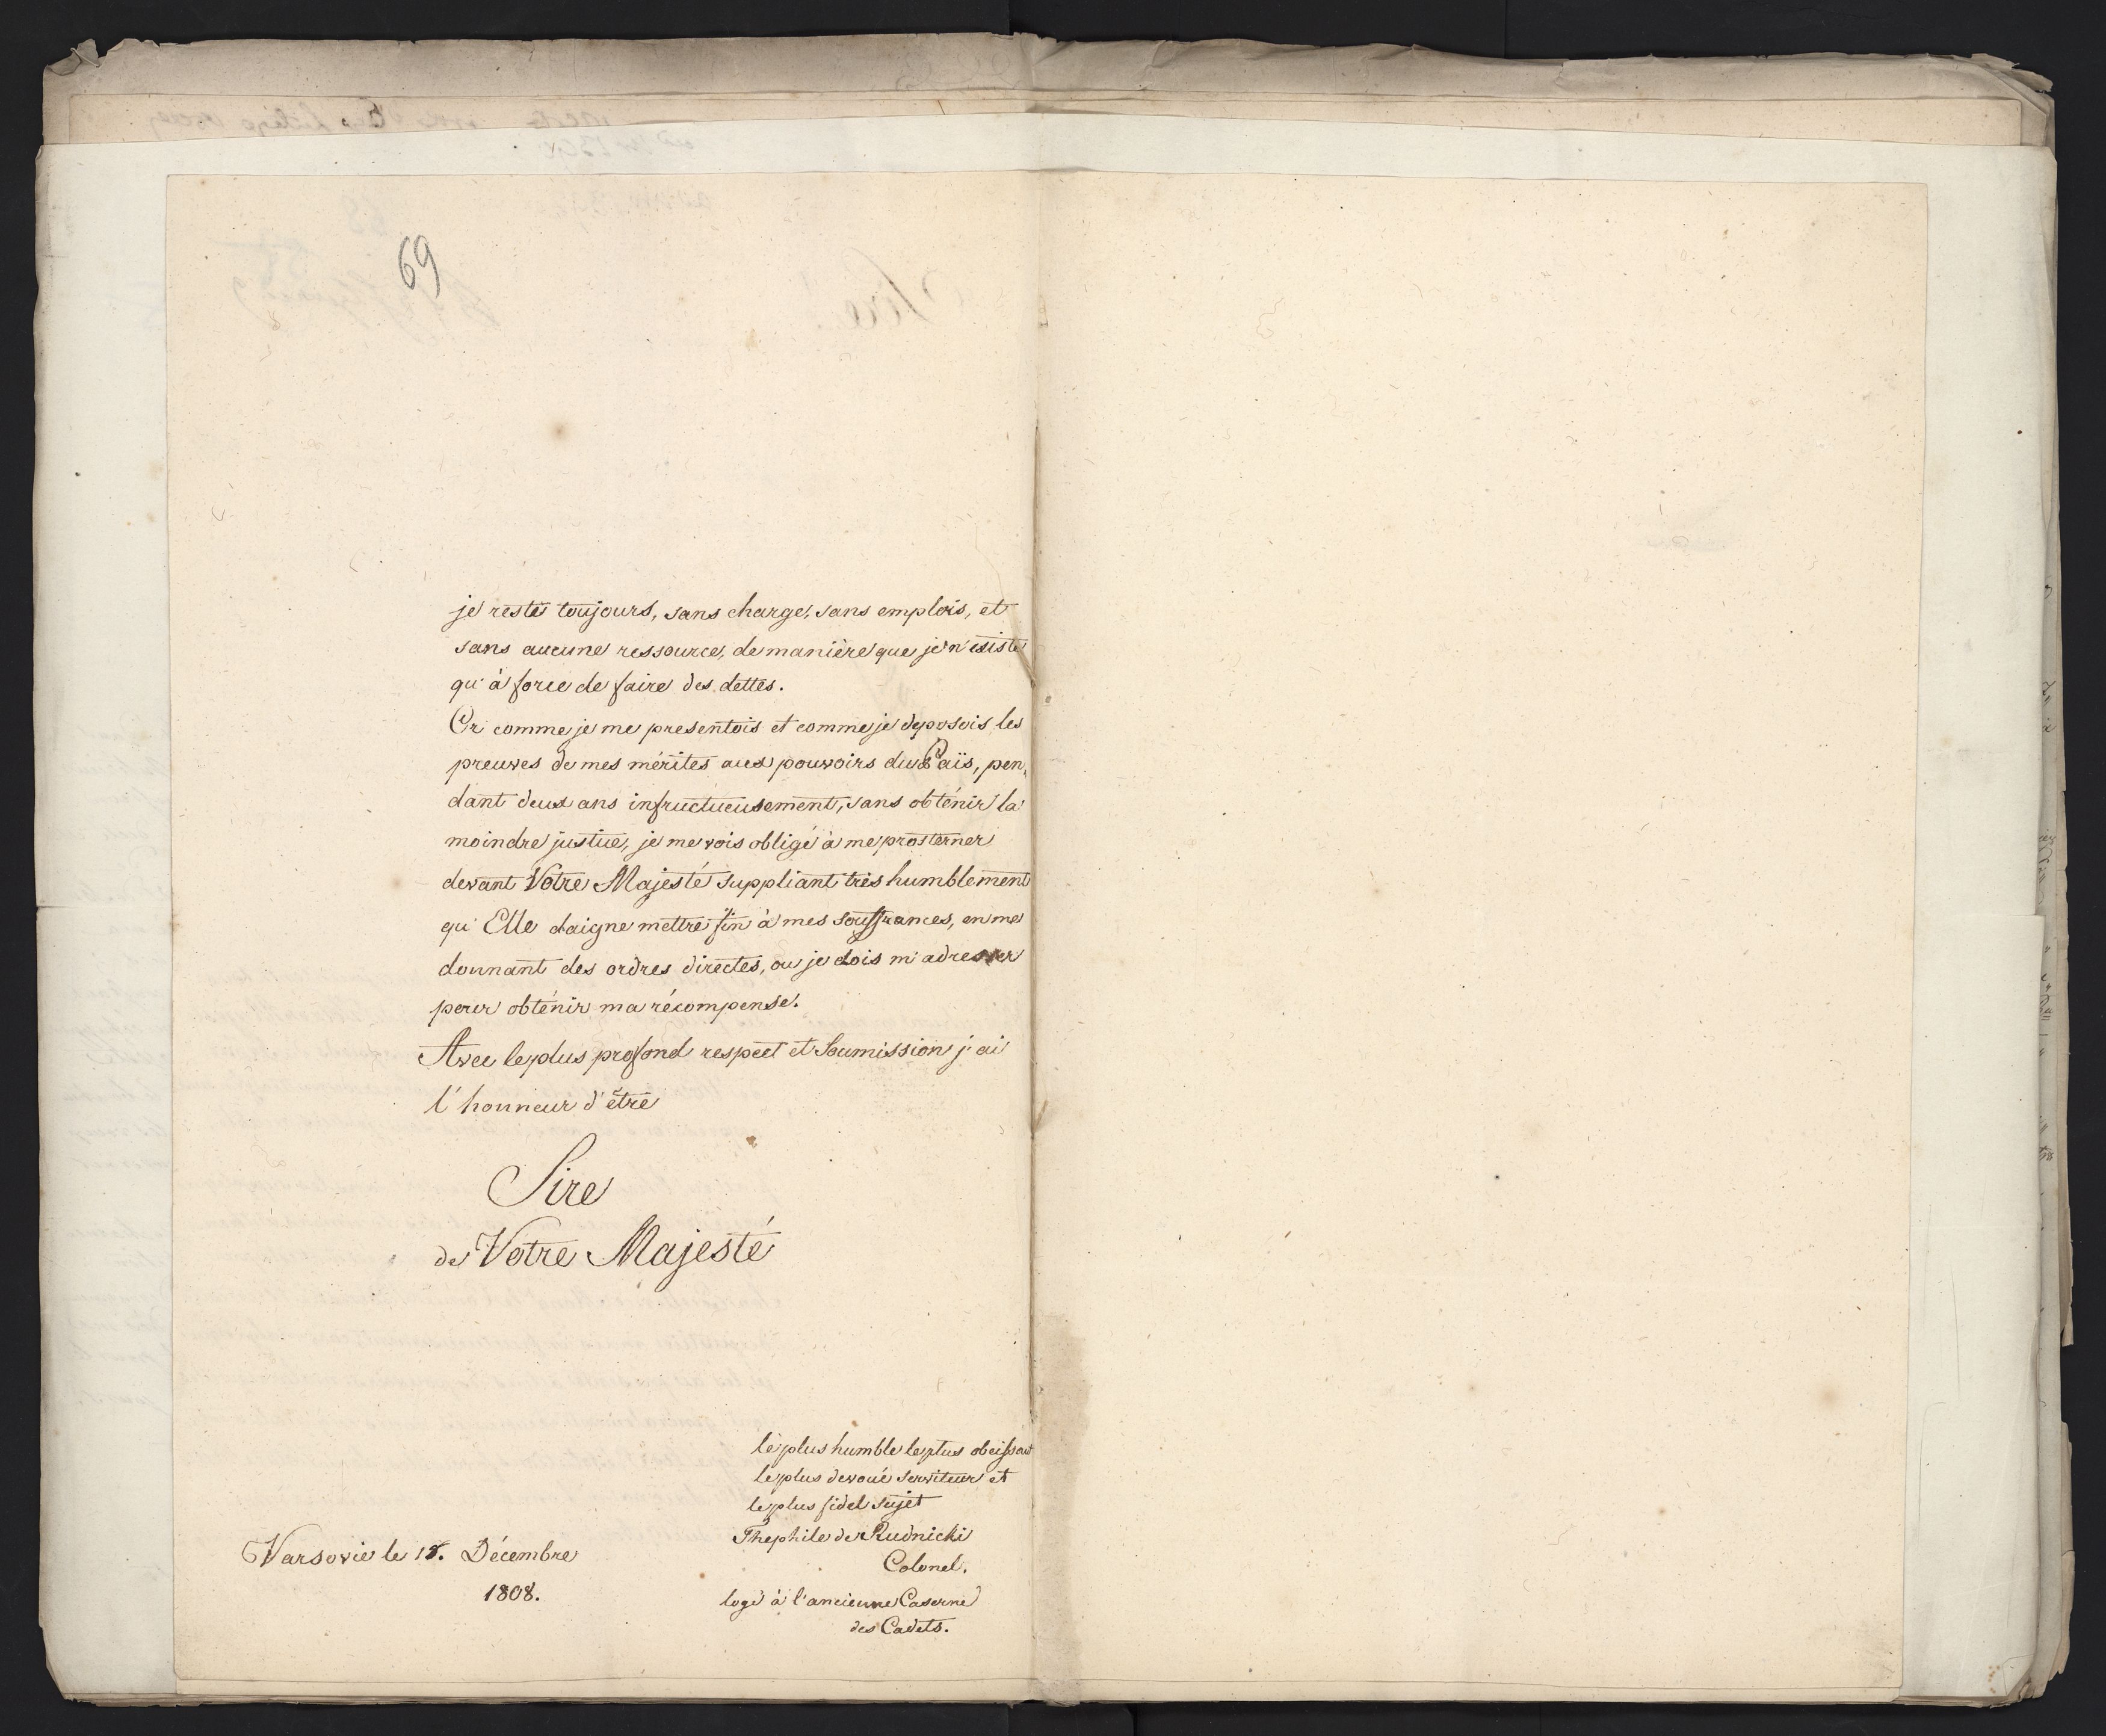 69
je reste toujours, sans charge, sans emplois, et
sans aucune ressource, de manière que je n'existe
qu'à force de faire des dettes.
Or comme je me presentois et comme je deposois les
preuves de mes mérites aux pouvoirs du Païs, pen,
dant deux ans infructueusement, sans obténir la
moindre justice, je me vois obligé à me prosterner
devant Votre Majesté suppliant très humblement
qu'Elle daigne mettre fin à mes souffrances, en me
donnant des ordres directes, ou je dois m'adresser
pour obténir ma récompense.
Avec le plus profond respect et Soumission j'ai
l'honneur d'être
Sire
de Votre Majesté
le plus humble le plus obeissant
le plus devoué serviteur et
le plus fidel sujet
Thephile de Rudnicki
Colonel.
Varsovie le 18. Décembre
1808.
logé à l'ancienne Caserne
des Cadets.